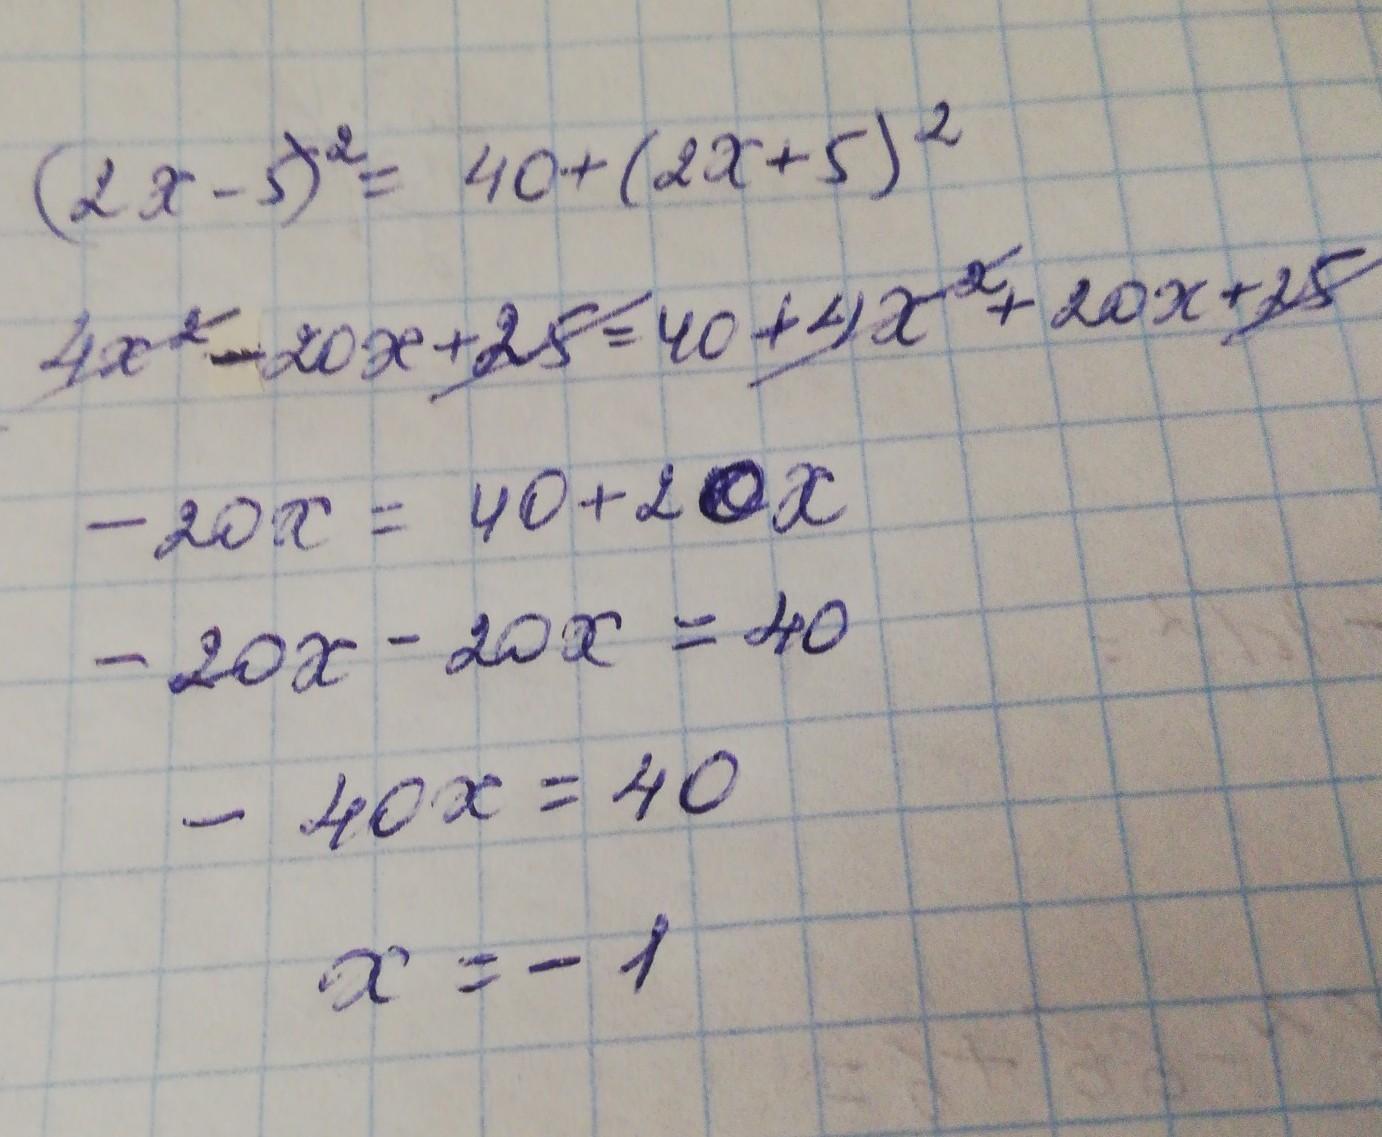 (2x-5)²= 40+(2x+5)²
4x²-20x+25=40+4x²+20x+25
-20x = 40+20x
-20x-20x = 40
- 40x = 40
x = -1